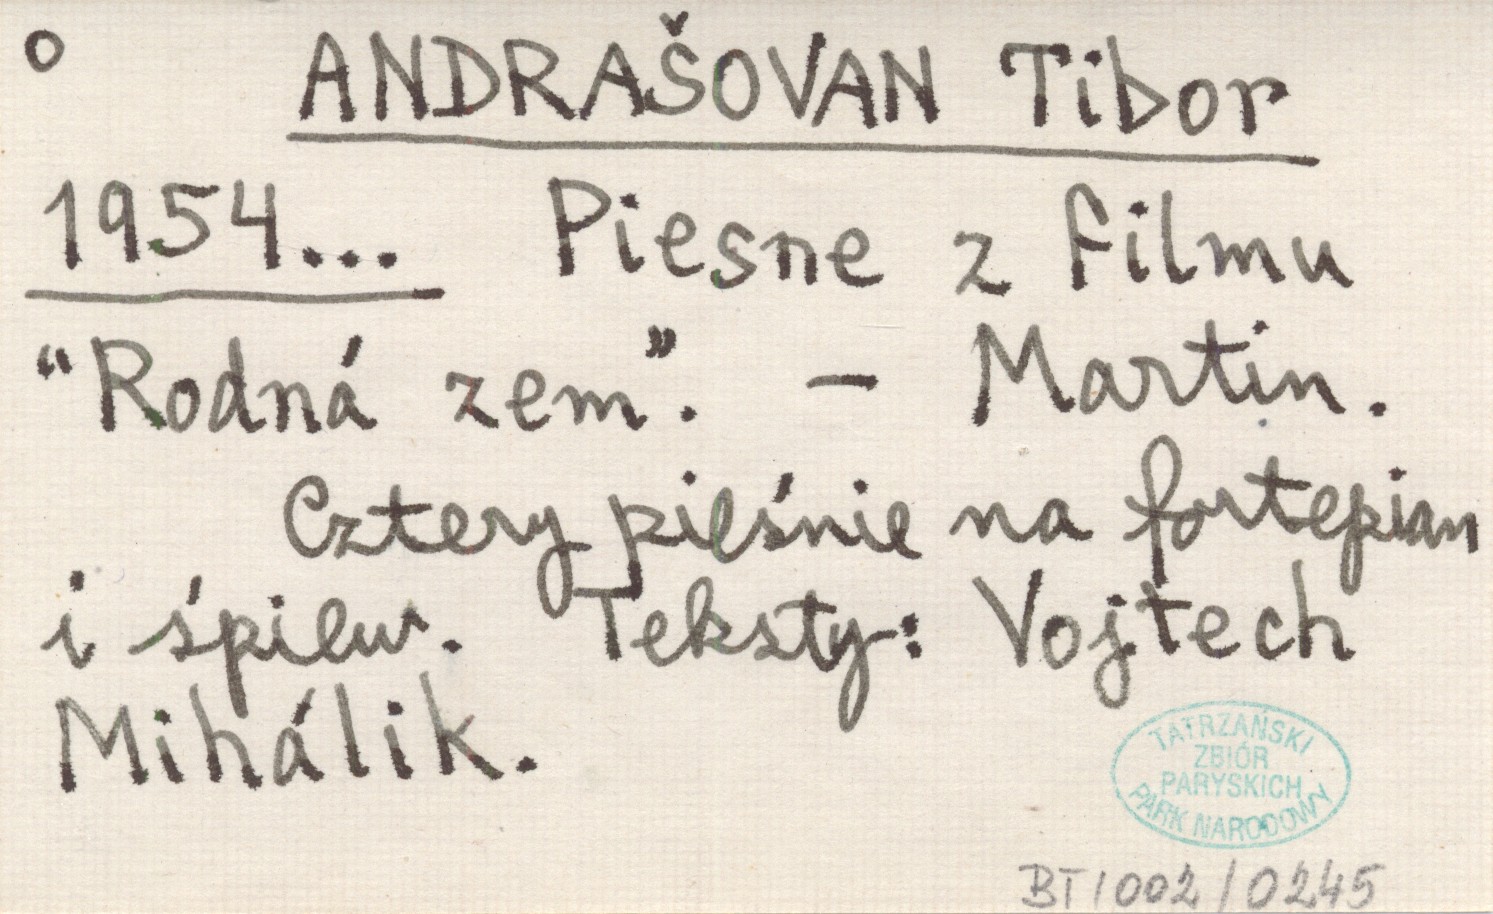 o ANDRAŠOVAN Tibor
1954... Piesne z filmu
“Rodná zem”. – Martin.
Cztery pieśnie na fortepian
i śpiew. Teksty: Vojtech
Mihálik.
TATRZAŃSKI
ZBIÓR
PARYSKICH
PARK NARODOWY
BT1002/0245